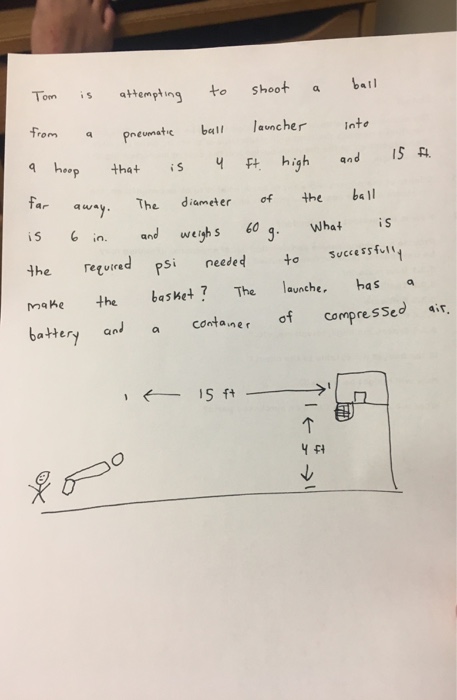 Tom is attempting to shoot a ball
from a pneumatic ball launcher into
a hoop that is 4 ft. high and 15 ft.
far away. The diameter of the ball
is 6 in. and weighs 60 g. What is
the required psi needed to successfully
make the basket? The launcher has a
battery and a container of compressed air.
15 ft
4 ft